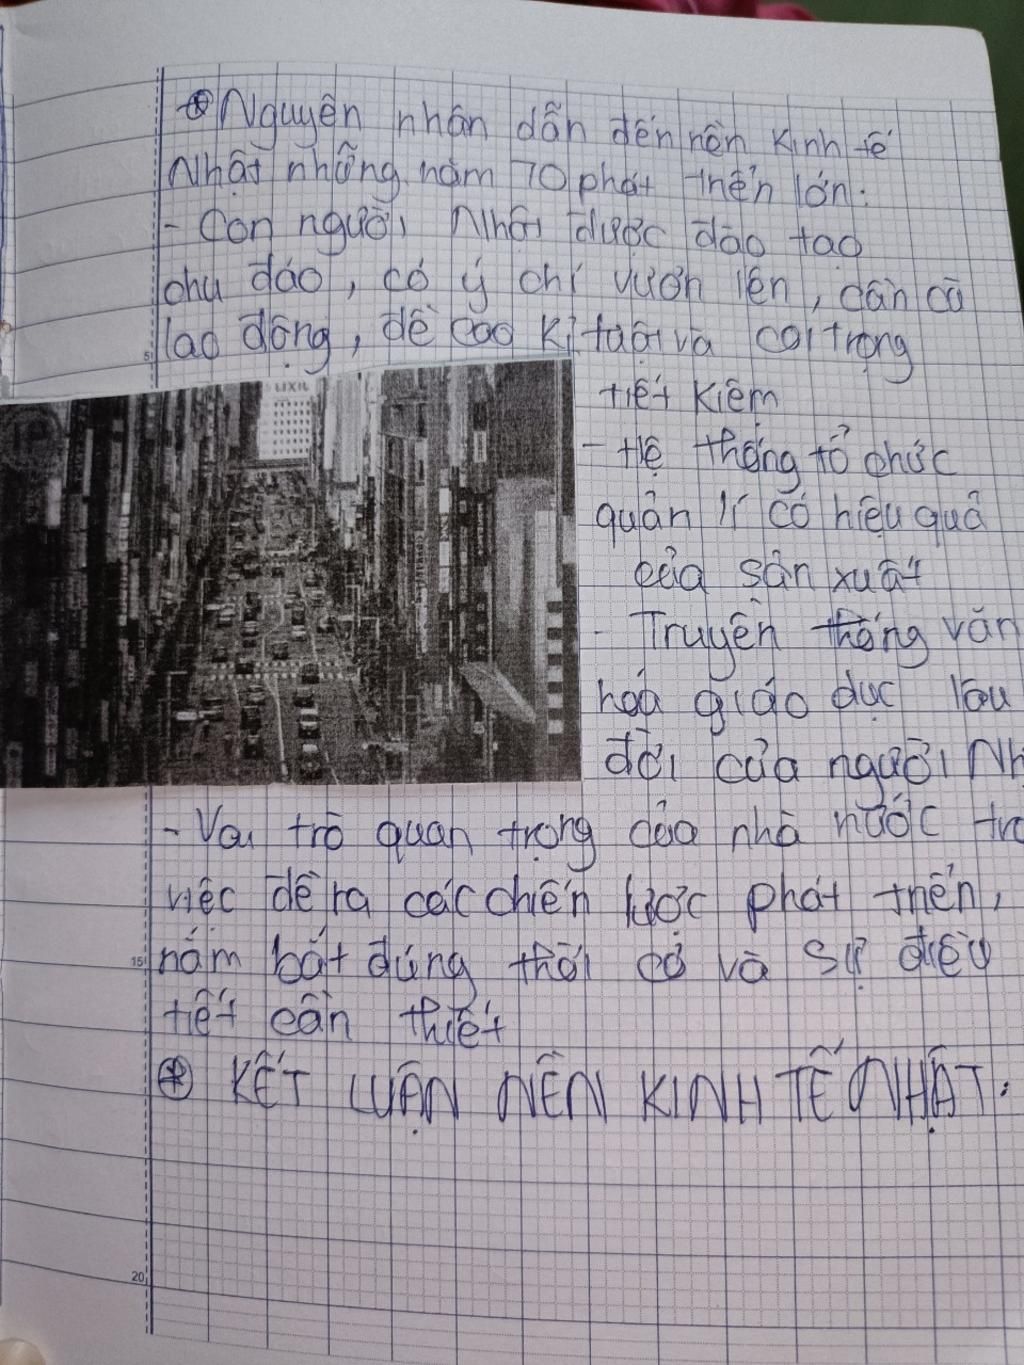 ⊛ Nguyên nhân dẫn đến nền kinh tế
Nhật những năm 70 phát triển lớn:
- Con người Nhật được đào tạo
chu đáo, có ý chí vươn lên, cần cù
lao động, đề cao kỉ luật và coi trọng
LIXIL
tiết kiệm
- Hệ thống tổ chức
quản lí có hiệu quả
của sản xuất
- Truyền thống văn
hoá giáo dục lâu
đời của người Nh
- Vai trò quan trọng của nhà nước tro
việc đề ra các chiến lược phát triển,
5
nắm bắt đúng thời cơ và sự điều
15
tiết cần thiết
⊛ KẾT LUẬN NỀN KINH TẾ NHẬT:
20